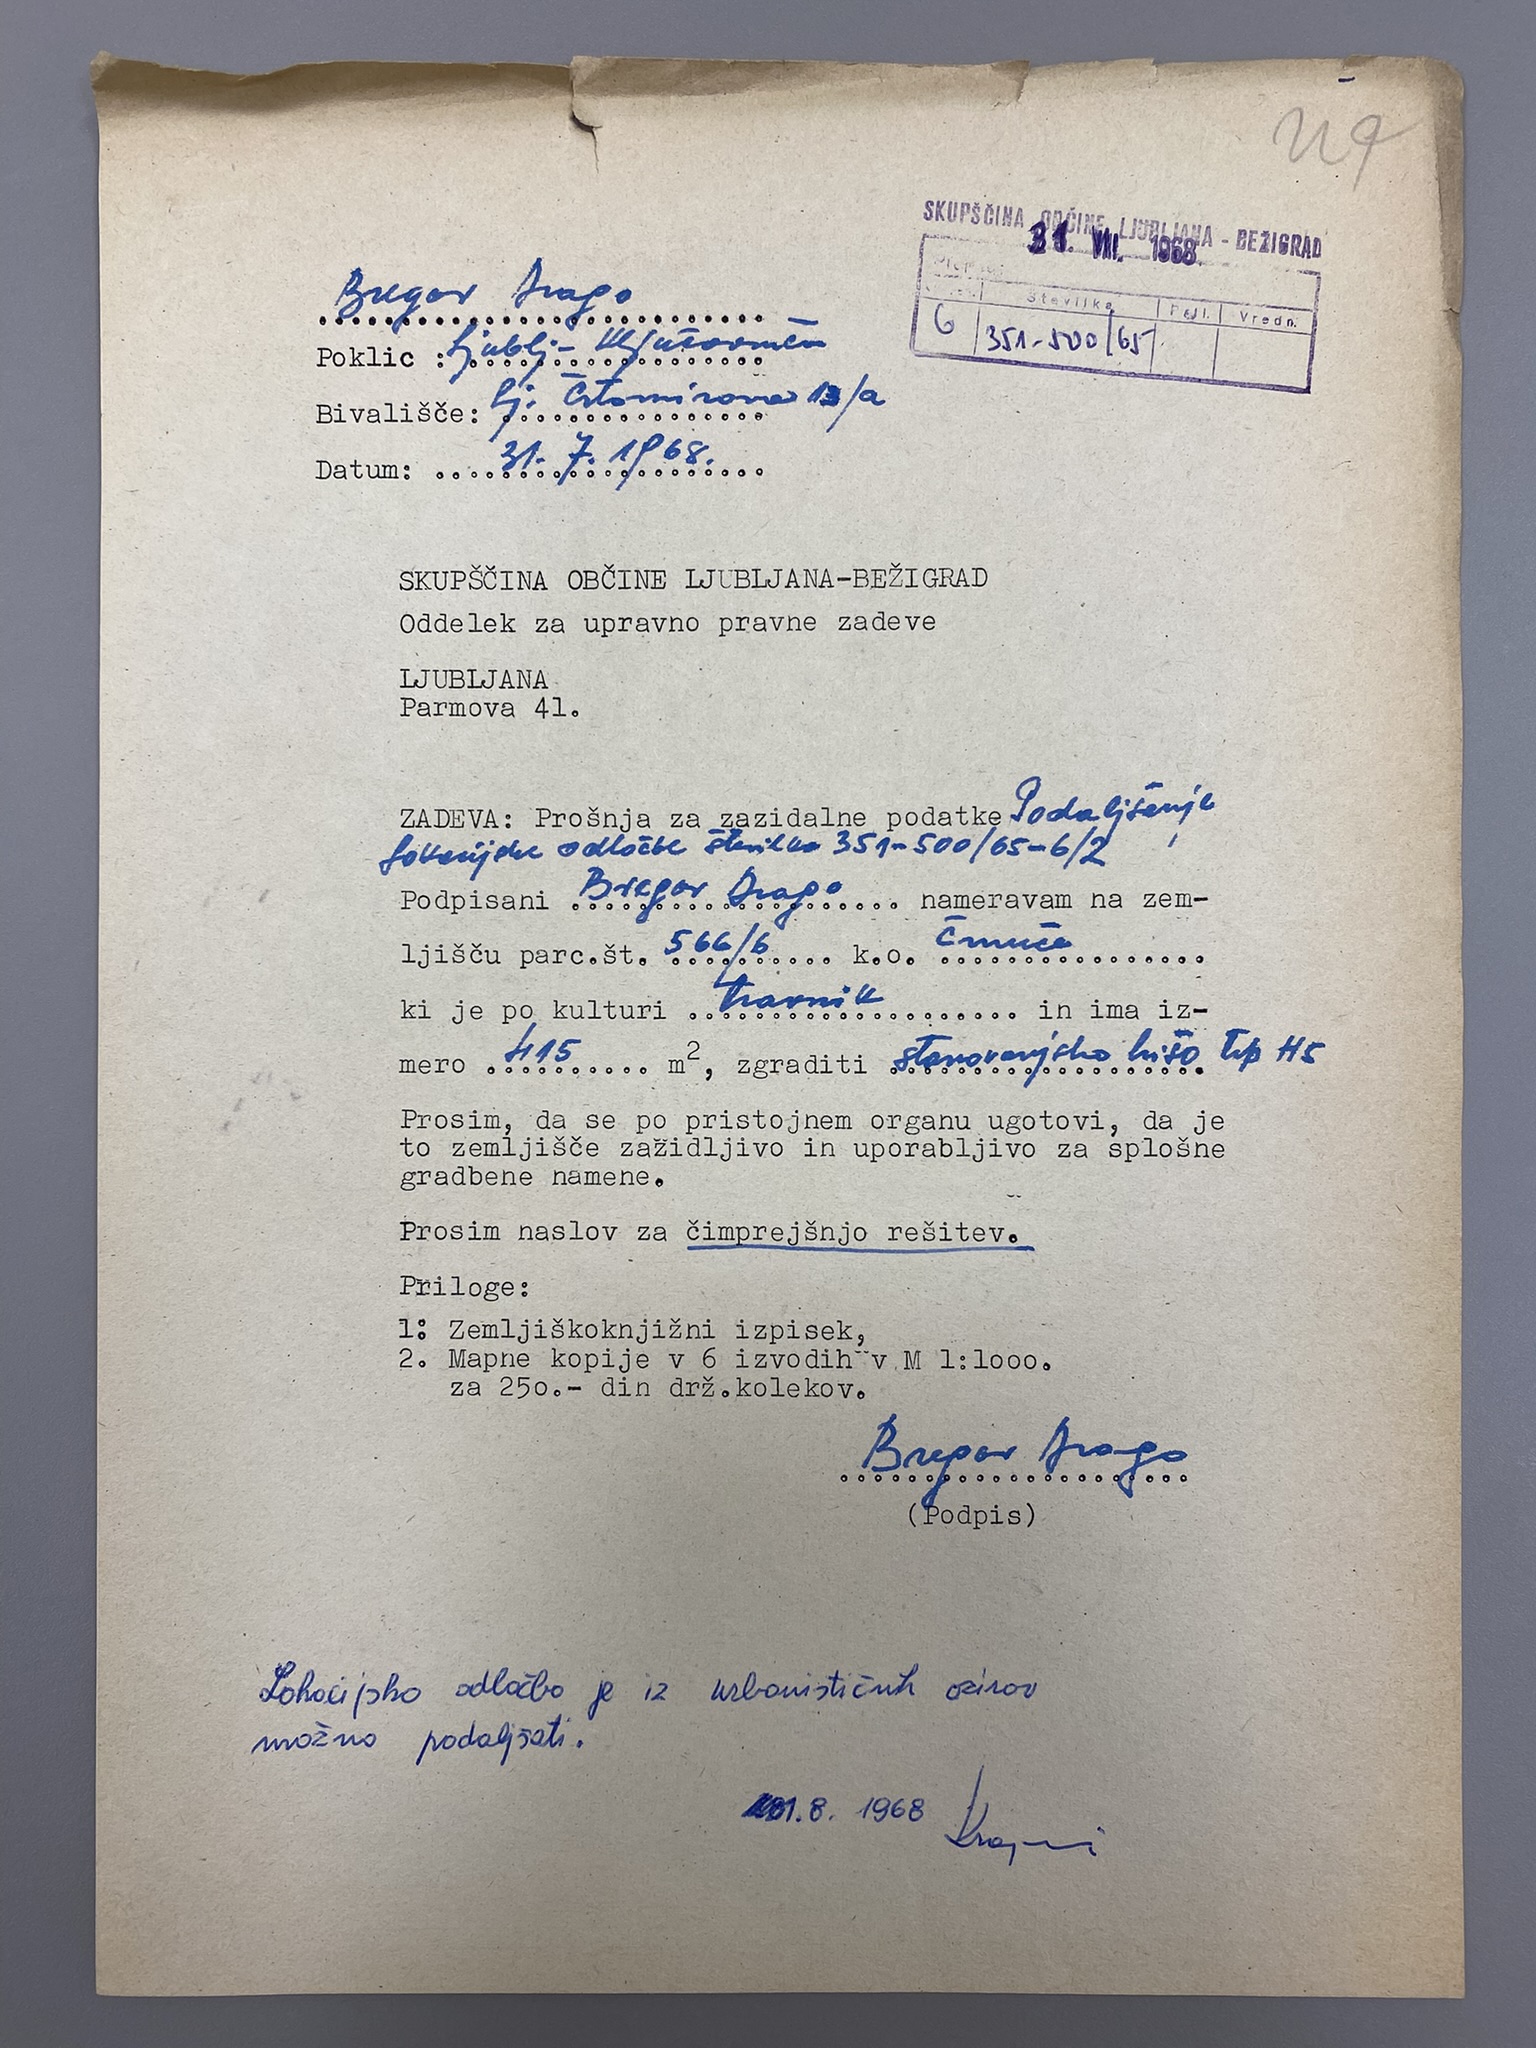 SKUPŠČINA OBČINE LJUBLJANA - BEŽIGRAD
31. VII. 1968
Številka Pril. Vredn.
6 351-500/65
Bregar Drago
Poklic : Ljublj- Ključavničar
Bivališče: Lj. Črtomirova 13/a
Datum: 31. 7. 1968.
SKUPŠČINA OBČINE LJUBLJANA-BEŽIGRAD
Oddelek za upravno pravne zadeve
LJUBLJANA
Parmova 41.
ZADEVA: Prošnja za zazidalne podatke Podaljšanje
lokacijske odločbe številka 351-500/65-6/2
Podpisani Bregar Drago nameravam na zem-
ljišču parc.št. 566/6 k.o. Črnuče
ki je po kulturi travnik in ima iz-
mero 415 m², zgraditi stanovanjsko hišo tip H5
Prosim, da se po pristojnem organu ugotovi, da je
to zemljišče zazidljivo in uporabljivo za splošne
gradbene namene.
Prosim naslov za čimprejšnjo rešitev.
Priloge:
1: Zemljiškoknjižni izpisek,
2. Mapne kopije v 6 izvodih v M 1:1000.
za 250.- din drž.kolekov.
Bregar Drago
(Podpis)
Lokacijsko odločbo je iz urbanističnih ozirov
možno podaljšati.
1.8. 1968